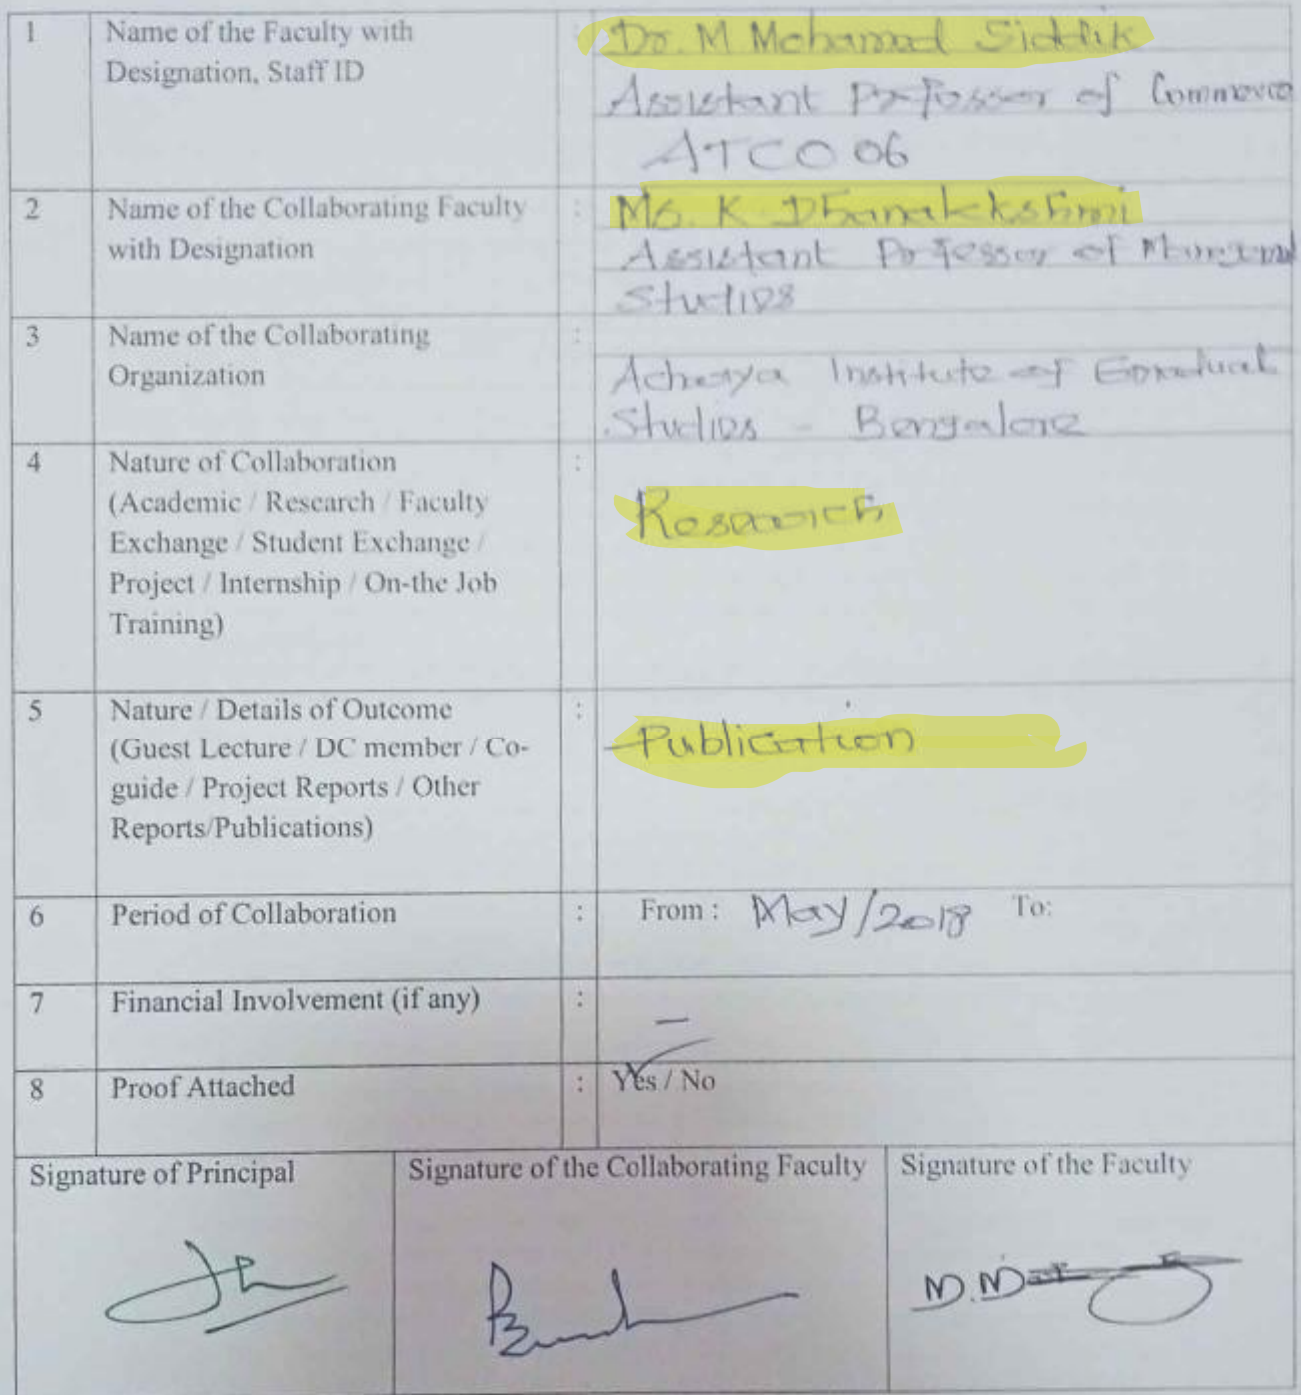 1 Name of the Faculty with : Dr. M Mohamad Siddik
Designation, Staff ID Assistant Professor of Commerce
ATCO 06
2 Name of the Collaborating Faculty : Ms. K Dhanalakshmi
with Designation Assistant Professor of
Studies
3 Name of the Collaborating :
Organization Acharya Institute of Graduate
Studies - Bengalore
4 Nature of Collaboration :
(Academic / Research / Faculty Research
Exchange / Student Exchange /
Project / Internship / On-the Job
Training)
5 Nature / Details of Outcome :
(Guest Lecture / DC member / Co- Publication
guide / Project Reports / Other
Reports/Publications)
6 Period of Collaboration : From : May/2018 To:
7 Financial Involvement (if any) : –
8 Proof Attached : Yes / No
Signature of Principal Signature of the Collaborating Faculty Signature of the Faculty